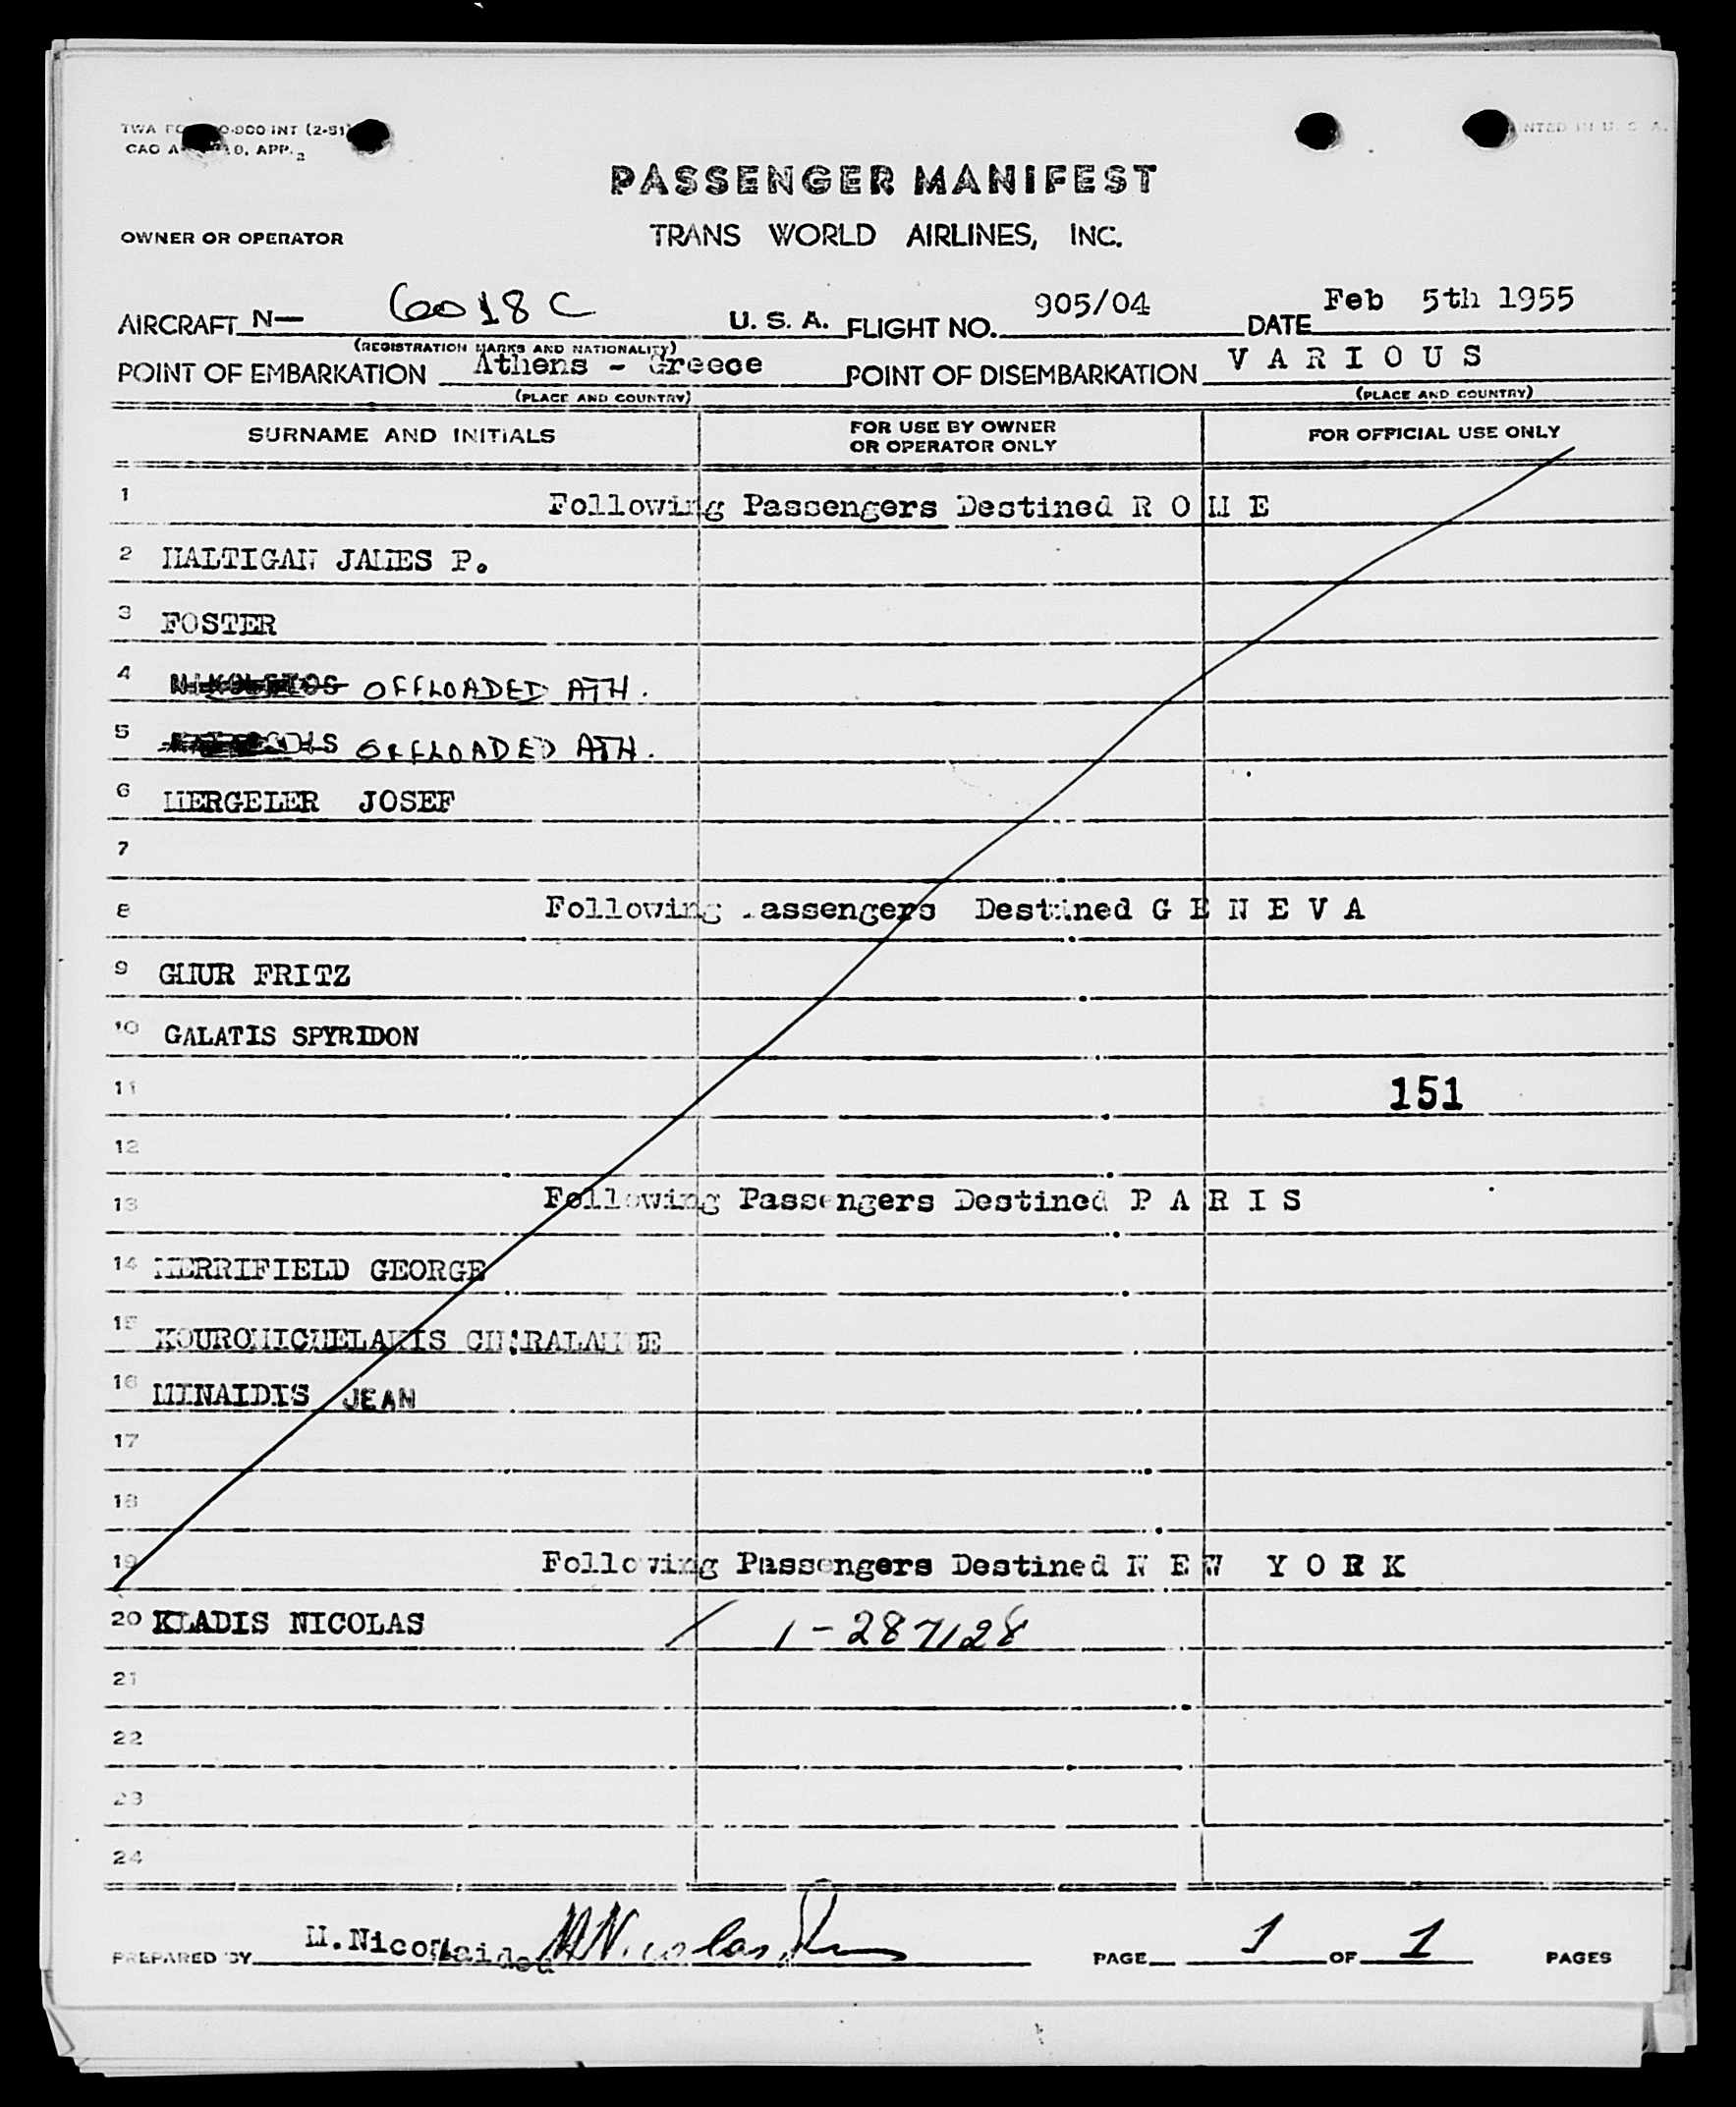 TWA INT (2-51)
CAO APP. 2
PRINTED IN U. S. A.
PASSENGER MANIFEST
OWNER OR OPERATOR TRANS WORLD AIRLINES, INC.
AIRCRAFT N— 6018C U. S. A. FLIGHT NO. 905/04 DATE Feb 5th 1955
(REGISTRATION MARKS AND NATIONALITY)
POINT OF EMBARKATION Athens - Greece POINT OF DISEMBARKATION V A R I O U S
(PLACE AND COUNTRY) (PLACE AND COUNTRY)
SURNAME AND INITIALS FOR USE BY OWNER OR OPERATOR ONLY FOR OFFICIAL USE ONLY
1 Following Passengers Destined R O M E
2 HALTIGAN JAMES P.
3 FOSTER
4 OFFLOADED ATH.
5 OFFLOADED ATH.
6 MERGELER JOSEF
7
8 Following Passengers Destined G E N E V A
9 GMUR FRITZ
10 GALATIS SPYRIDON
11 151
12
13 Following Passengers Destined P A R I S
14 MERRIFIELD GEORGE
15 KOUROMICHELAKIS CHARALAMBE
16 MINAIDIS JEAN
17
18
19 Following Passengers Destined N E W Y O R K
20 KLADIS NICOLAS 1-287128
21
22
23
24
PREPARED BY M.Nicolaides PAGE 1 OF 1 PAGES